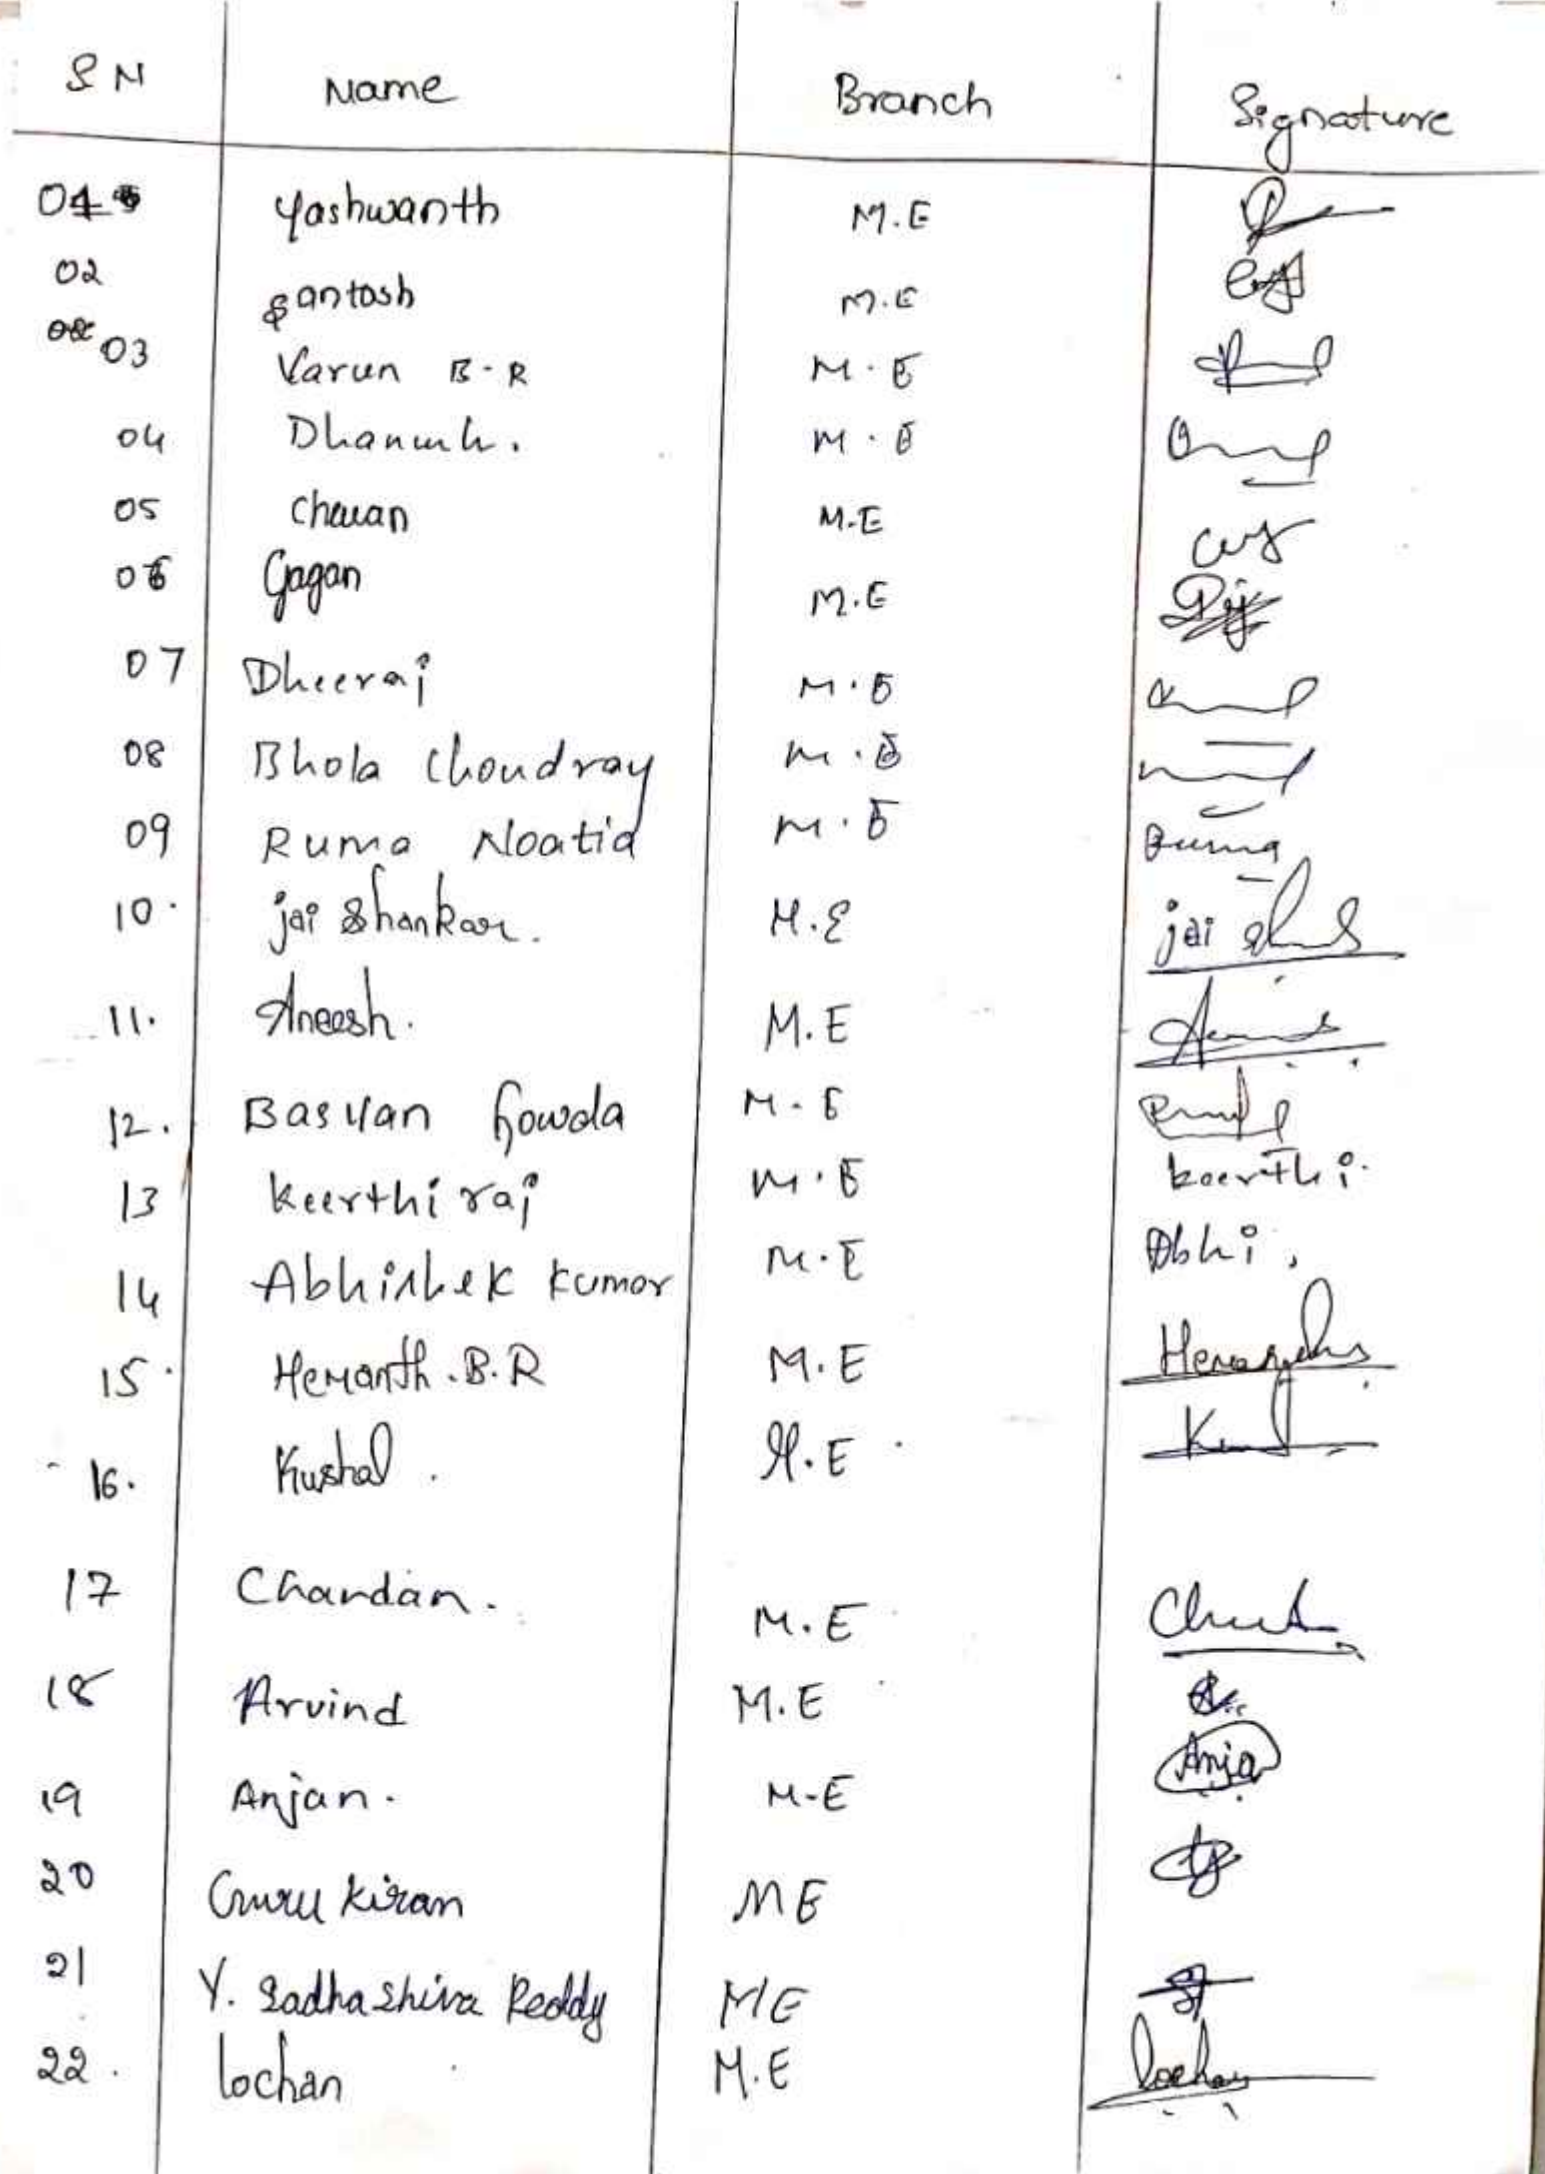 S N Name Branch Signature
01 Yashwanth M.E
02 Santosh M.E
03 Varun B.R M.E
04 M.E
05 M.E
06 Gagan M.E
07 Dheeraj M.E
08 Bhola Choudray M.E
09 Ruma Noatia M.E Ruma
10. jai Shankar. M.E jai
11. Aneesh. M.E
12. Gowda M.E
13 Keerthi raj M.E keerthi.
14 Abhishek Kumar M.E Abhi.
15. Hemanth.B.R M.E
16. Kushal. M.E
17 Chandan. M.E
18 Arvind M.E
19 Anjan. M-E Anja
20 Guru Kiran ME
21 Y. Sadha Shiva Reddy ME
22. lochan M.E lochan